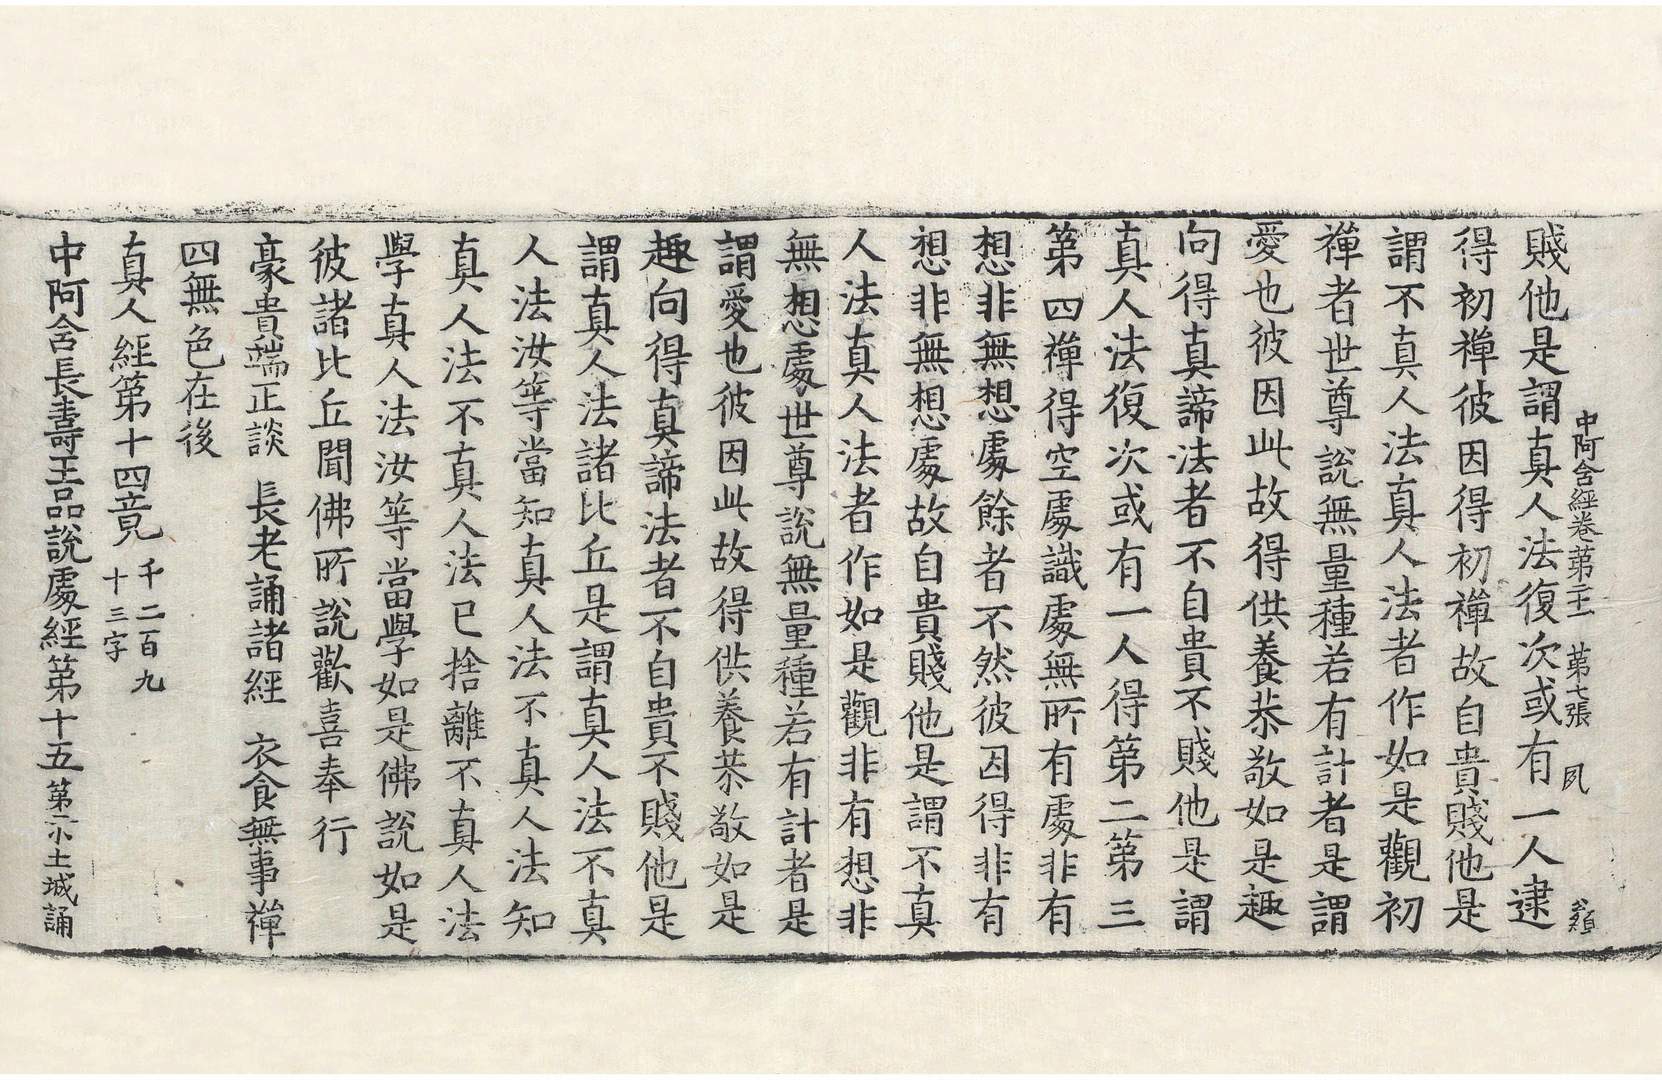 中阿含經卷第二十一 第七張 夙
賤他是謂真人法復次或有一人逮
得初禪彼因得初禪故自貴賤他是
謂不真人法真人法者作如是觀初
禪者世尊說無量種若有計者是謂
愛也彼因此故得供養恭敬如是趣
向得真諦法者不自貴不賤他是謂
真人法復次或有一人得第二第三
第四禪得空處識處無所有處非有
想非無想處餘者不然彼因得非有
想非無想處故自貴賤他是謂不真
人法真人法者作如是觀非有想非
無想處世尊說無量種若有計者是
謂愛也彼因此故得供養恭敬如是
趣向得真諦法者不自貴不賤他是
謂真人法諸比丘是謂真人法不真
人法汝等當知真人法不真人法知
真人法不真人法已捨離不真人法
學真人法汝等當學如是佛說如是
彼諸比丘聞佛所說歡喜奉行
豪貴端正談 長老誦諸經 衣食無事禪
四無色在後
真人經第十四竟 千二百九
十三字
中阿含長壽王品說處經第十五 第二小土城誦